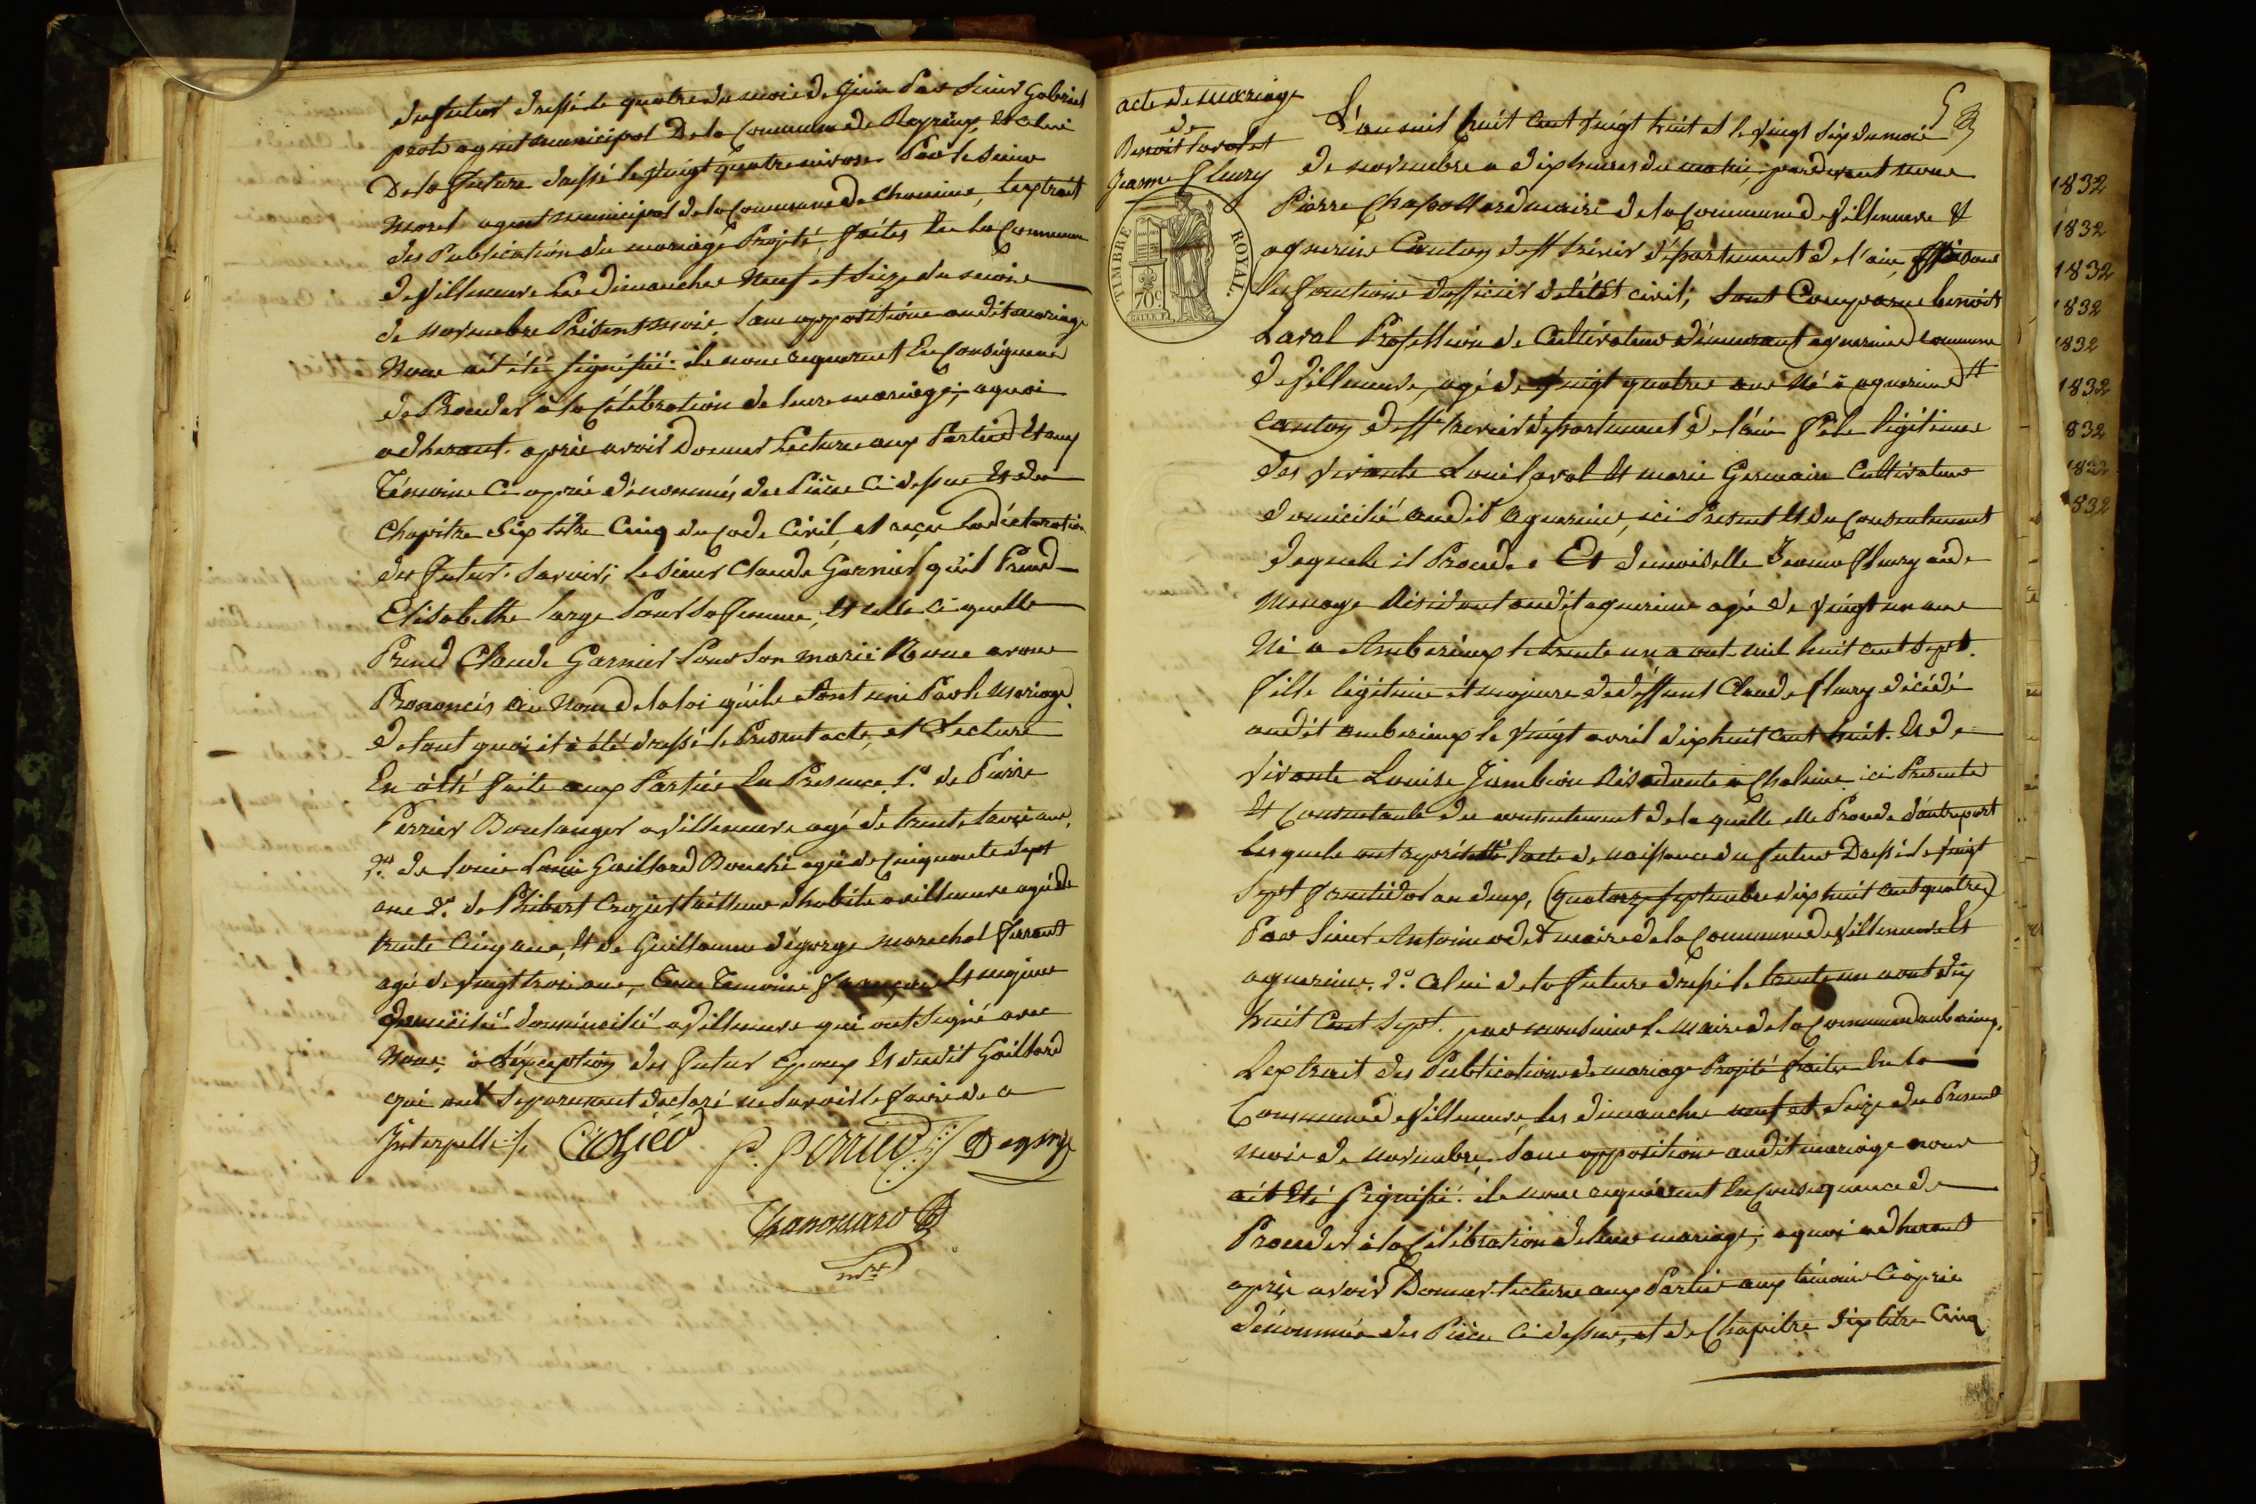 du futur dressé le quatre du mois de Juin Par Sieur Gabriel
agent municipal De la Commune de Reyrieux, et celui
De la Future dressé le vingt quatre nivose Par le sieur
Morel agent municipal de la Commune de Chaneins, l'extrait
des Publication du mariage Projeté, faites En la Commune
de Villeneuve Les dimanches Neuf et Seize du mois
de novembre Présent mois. Sans opposition audit mariage
Nous ait été signifié. ils nous requerent En Conséquence
de Proceder à la Célébration de leurs mariage; aquoi
adherant. après avoir Donner Lecture aux Parties Et aux
Témoins Ci après dénommés des Pièces Ci dessus Et du
Chapitre Six titre Cinq du Code Civil, et reçu la déclaration
des futur. Savoir; le sieur Claude Garnier qu'il Prend
Elisabethe large Pour Sa Femme, Et celle ci quelle
Prend Claude Garnier Pour Son marie Nous avons
Prononcés Au Nom de la loi qu'ils etant uni Par le Mariage.
de tout quoi il à été dressé le Present acte, et Lecture
En à été faite aux Parties En Presence. 1º. de Pierre
Perrier Boulanger a Villeneuve agé de trente ans,
2º. de Louis Gaillard Bouché agé de Cinquante Sept
ans 3º. de Philibert Crozier tailleur d'habits a villeneuve agé de
trente Cinq ans, Et de Guillaume dégorge marechal ferrant
agé de vingt trois ans, Tous Temoins français Et majeur
domicilié a Villeneuve qui ont Signé avec
Nous, à l'éxception des futur Epoux Et dudit Gaillard
qui ont Separement déclaré ne Savoir le faire de ce
Interpellé ./.
Crozier P. Perrier Degorge
Chapottard
mre
acte de mariage
de
Benoit Laval et
Jeanne Fleury
TIMBRE ROYAL.
70c
53
L'an mil huit Cent vingt huit et le vingt Six du mois
de novembre a dix heures du matin, pardevant nous
Pierre Chapottard maire de la Commune de Villeneuve &
agnerins Canton de St trivier département de l'ain, fesant
les fonctions d'officier de létat civil, Sont Comparus benoit
Laval Profession de Cultivateur démeurant agnerins Commune
de Villeneuve, agé de vingt quatre ans Né à agnerins
Canton de St trivier département de l'ain Fils légitime
des vivants Louis Laval Et marie Germain Cultivateurs
domicilié audit agnerins, ici Present Et du Consentement
desquels il Procede. Et demoiselle Jeanne Fleury aide
Menage Résidant audit agnerins agé de vingt un ans
Né a Amberieux le trente un aout mil huit cent Sept.
fille légitime et majeure de deffunt Claude fleury décédé
audit amberieux le vingt avril dixhuit cent huit. Et de
vivante Louise Jambion Résidante a Chaleins ici Presente
Et Consentante du consentement de laquelle elle Procede d'autre part
lesquels ont l'acte de naissance du futur Dressé le vingt
Sept fructidor an douze, (quatorze Septembre dix huit cent quatre)
Par Sieur Antoine maire de la Commune de Villeneuve Et
agnerins. 2º. Celui de la future dressé le trente un aout dix
huit Cent Sept. par monsieur le Maire de la Commune d'amberieux,
L'extrait des Publications de mariage Projeté faites En la
Commune de Villeneuve, les dimanches neuf et Seize du Present
mois de novembre, Sans opposition audit mariage nous
ait Eté signifié. ils nous requierent En Consequence de
Proceder à la Célébration de leurs mariage; aquoi adherant
après avoir Donner lecture aux Parties aux témoins Ci après
dénommés des Pièces Ci dessus, et de Chapitre Six titre Cinq
1832
1832
1832
1832
1832
1832
832
1832
832